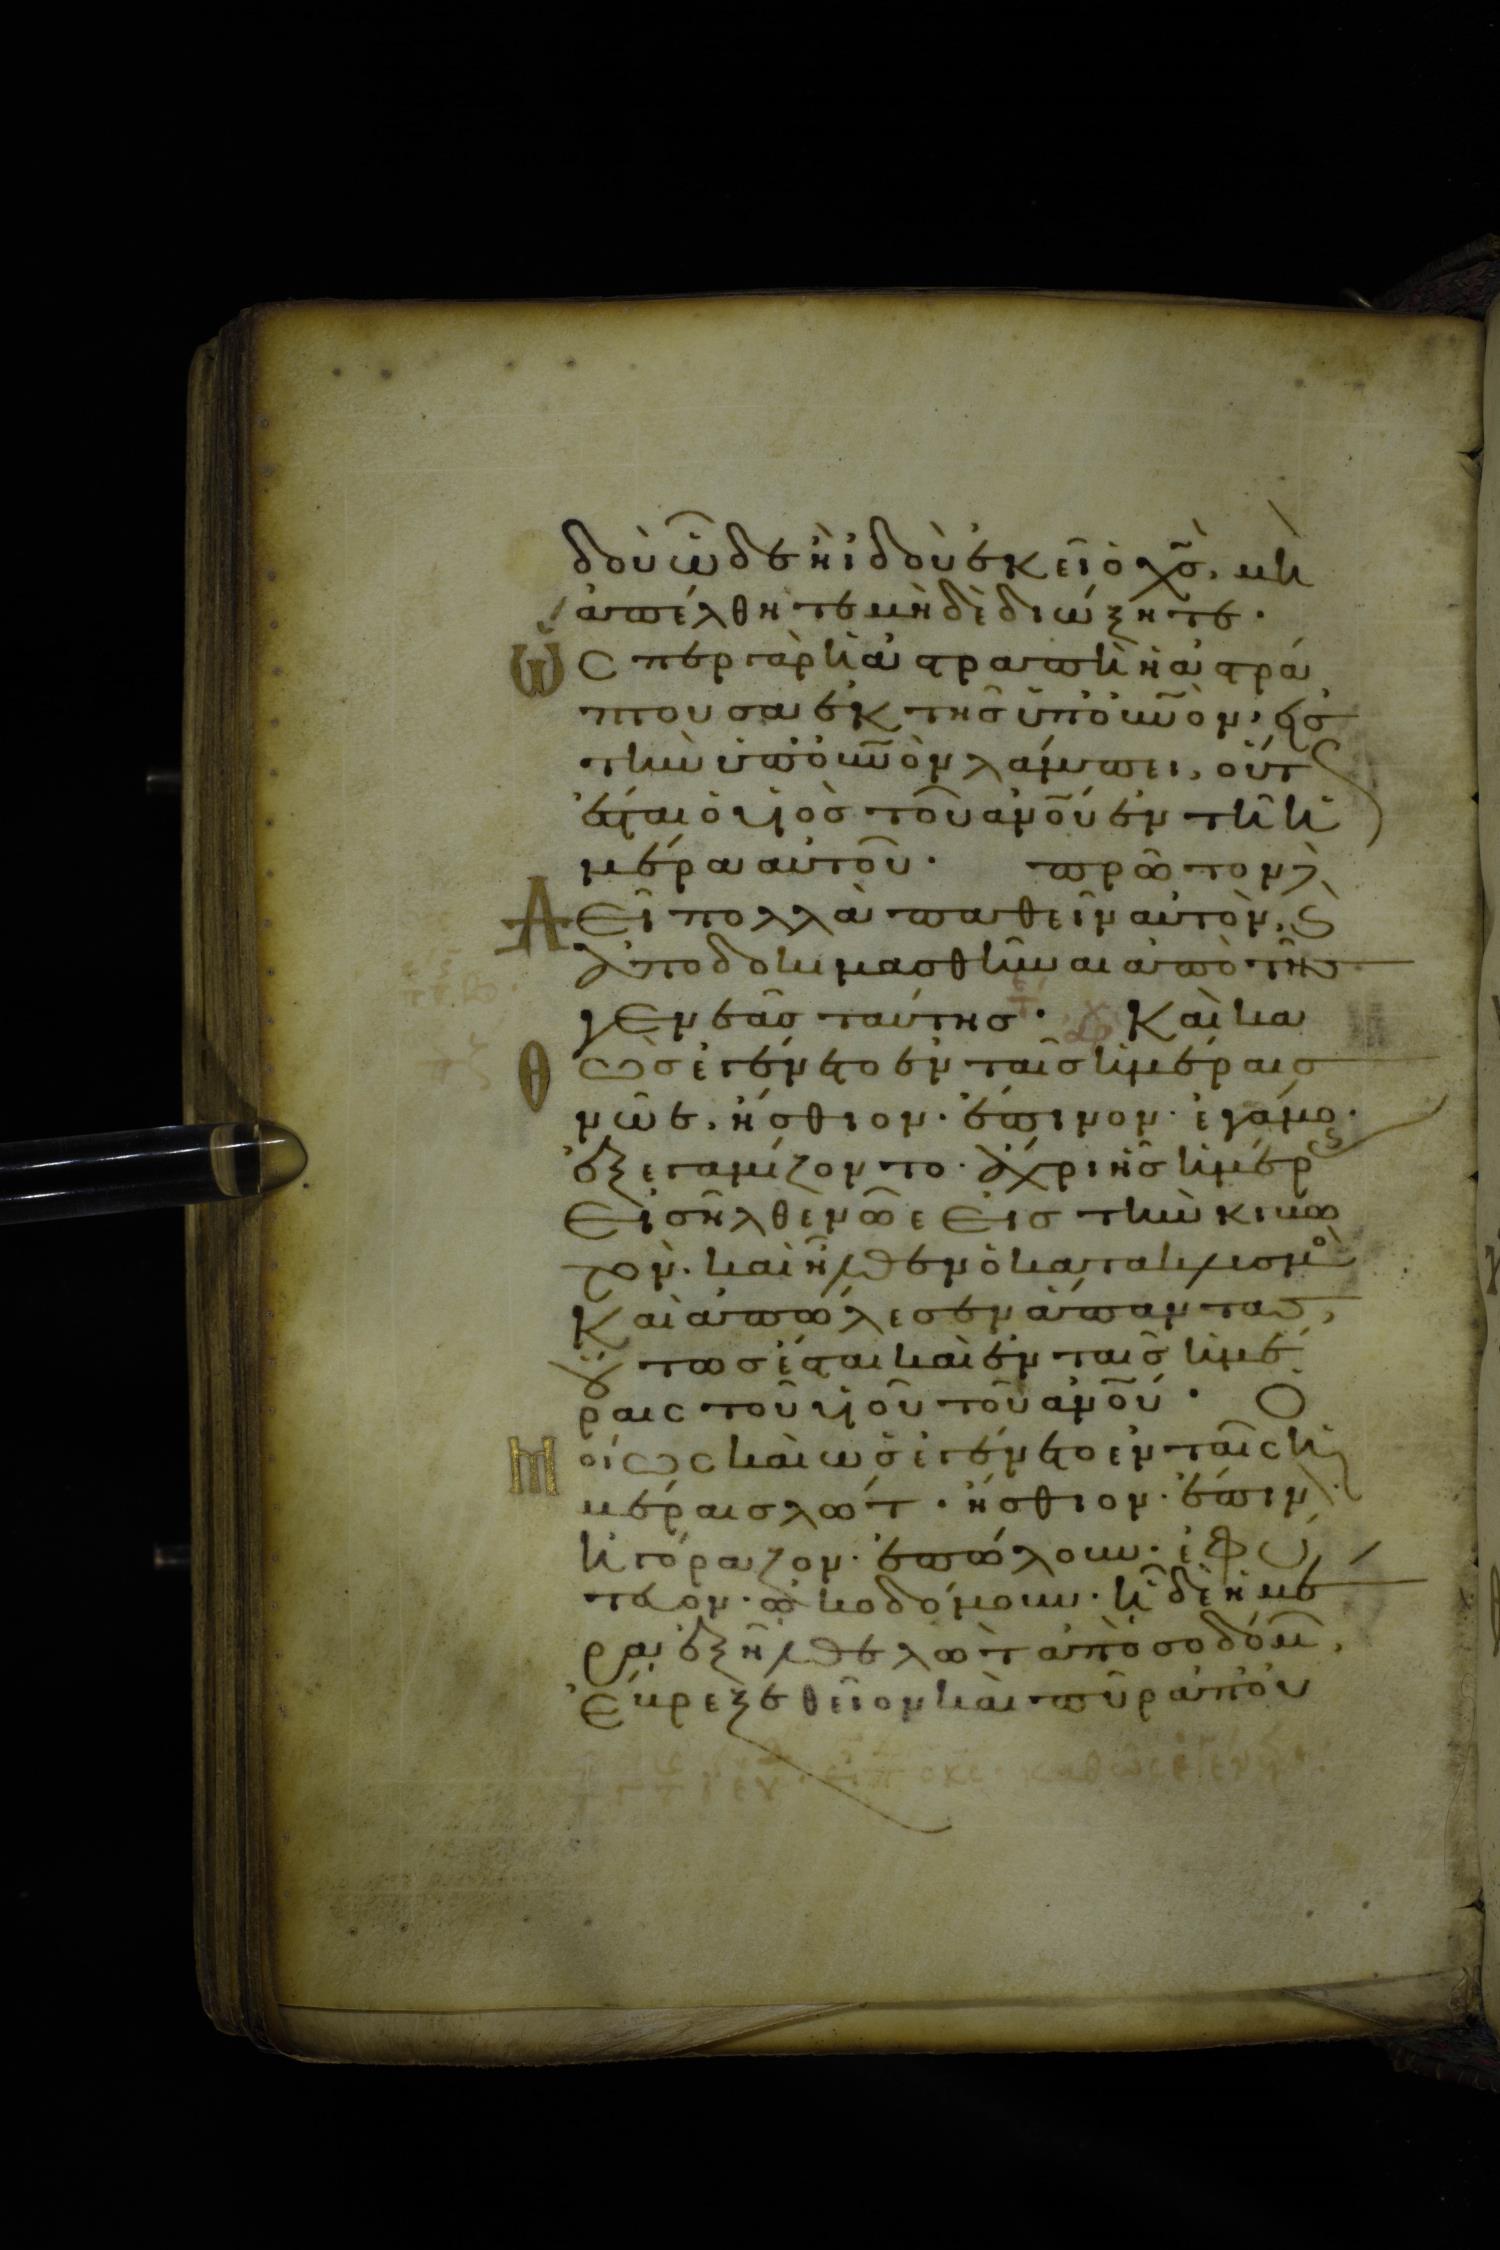 δοὺ ὧδε ἢ ἰδοὺ ἐκεῖ ὁ χ̅σ̅, μὴ
ἀπέλθητε μὴδὲ διώξητε·
Ὥσπερ γὰρ ἡ ἀστραπὴ ἡ ἀστρά
πτουσα ἐκ τῆς ὑπὸ οὐ̅νὸν, εἰσ
τὴν ὑπὸ οὐ̅νὸν λάμπει, οὕτ
ἔσται ὁ υἱὸσ τοῦ ἀν̅ου ἐν τῆ ἡ
μέρα αὐτοῦ· πρῶτον δὲ
Δεῖ πολλὰ παθεῖν αὐτὸν, κ
ἀποδοκιμασθῆναι ἀπὸ τῆσ
γενεᾶσ ταύτησ· Καὶ κα
θὼσ ἐγένετο ἐν ταῖσ ἡμέραισ
νῶε, ἤσθιον· ἔπινον· ἐγάμουν·
ἐξεγαμίζοντο· ἄχρι ἧσ ἡμέρ
Εἰσῆλθε νῶε Εἰσ τὴν κιβω
τὸν· καὶ ἦλθεν ὁ κατακλυσμὸσ
Καὶ ἀπώλεσεν ἅπαντασ,
οὕτωσ ἔσται καὶ ἐν ταῖσ ἡμέ
ραισ τοῦ υἱοῦ τοῦ ἀν̅ου· Ὁ
Μοίωσ καὶ ὡσ ἐγένετο ἐν ταῖσ ἡ
μέραισ λώτ· ἤσθιον· ἔπιν
ἠγόραζον· ἐπώλουν· ἐφύ
τευον· ὠκοδόμουν· ἧ δὲ ἡμέ
ρα ἐξῆλθε λὼτ ἀπὸ σοδόμ,
Ἔβρεξε θεῖον καὶ πῦρ ἀπ' οὐ